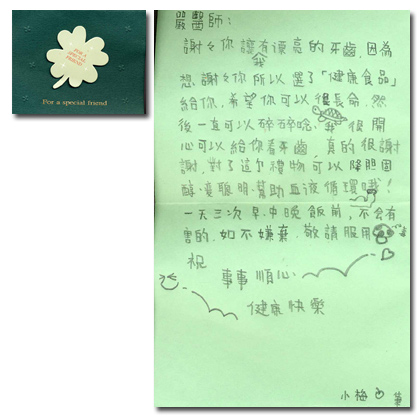 FOR A
SPECIAL
FRIEND
For a special friend
嚴醫師：
謝謝你讓我有漂亮的牙齒，因為
想謝謝你所以選了「健康食品」
給你，希望你可以很長命，然
後一直可以碎碎唸，我很開
心可以給你看牙齒，真的很謝
謝，對了這個禮物可以降胆固
醇，變聰明，幫助血液循環哦！
一天三次早、中、晚飯前，不会有
害的，如不嫌棄，敬請服用
祝
事事順心
健康快樂
小梅